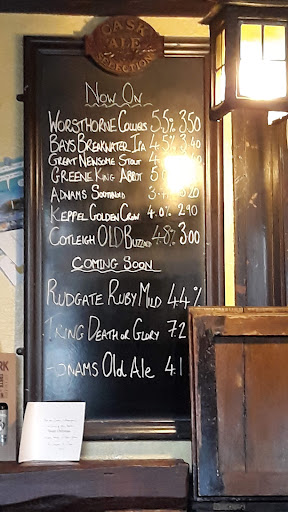 CASK
ALE
SELECTION
NOW ON
WORSTHORNE 5.5% 350
BAYS BREAKWATER IPA 4.5% 3.40
GREAT NEWSOME STOUT 4
GREENE KING ABBOT 5.0
ADNAMS SOUTHWOLD 3. 3.20
KEPPEL GOLDEN CROW 4.0% 2.90
COTLEIGH OLD BUZZARD 4.8% 3.00
COMING SOON
RUDGATE RUBY MILD 4.4%
TRING DEATH OR GLORY 7.2
ADNAMS Old Ale 4.1